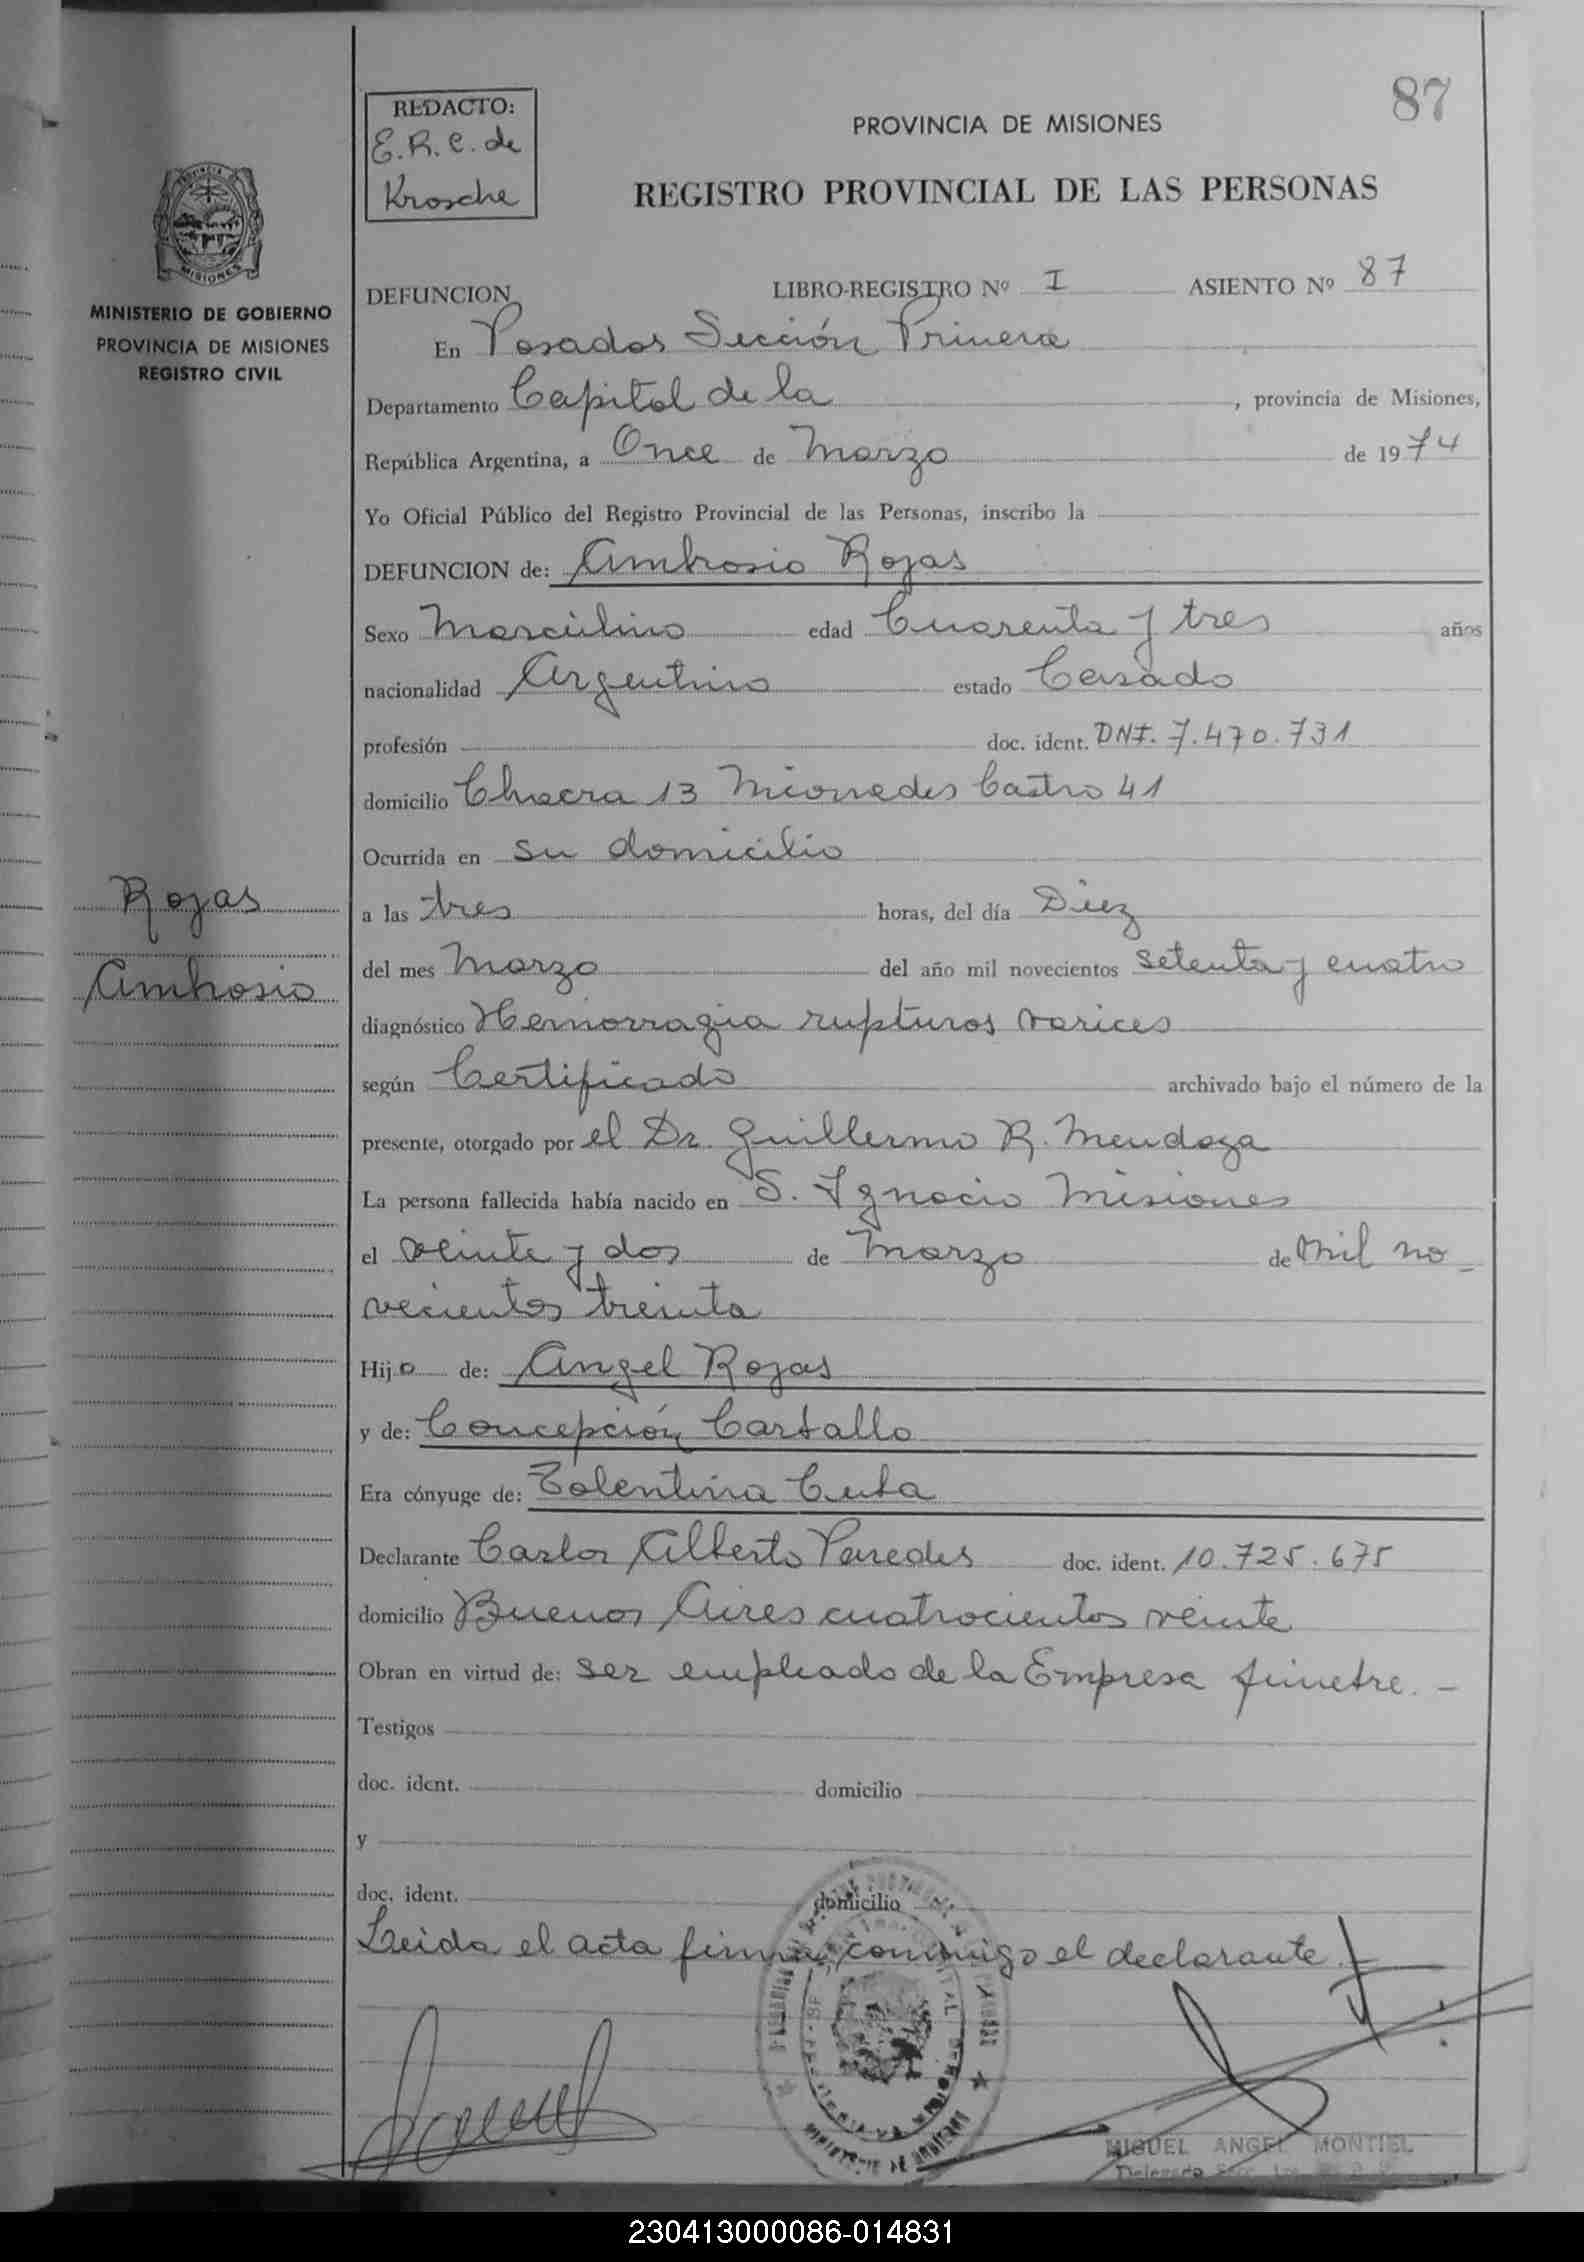 87
REDACTO:
E.R.C. de
Krosche
PROVINCIA DE MISIONES
REGISTRO PROVINCIAL DE LAS PERSONAS
PROVINCIA DE
MISIONES
MINISTERIO DE GOBIERNO
PROVINCIA DE MISIONES
REGISTRO CIVIL
DEFUNCION LIBRO-REGISTRO Nº I ASIENTO Nº 87
En Posadas Sección Primera
Departamento Capital de la , provincia de Misiones,
República Argentina, a Once de Marzo de 1974
Yo Oficial Público del Registro Provincial de las Personas, inscribo la
DEFUNCION de: Ambrosio Rojas
Sexo Masculino edad Cuarenta y tres años
nacionalidad Argentino estado Casado
profesión doc. ident. DNI. 7.470.731
domicilio Chacra 13 Castro 41
Ocurrida en su domicilio
Rojas
Ambrosio
a las tres horas, del día Diez
del mes Marzo del año mil novecientos setenta y cuatro
diagnóstico Hemorragia rupturas varices
según Certificado archivado bajo el número de la
presente, otorgado por el Dr. Guillermo R. Mendoza
La persona fallecida había nacido en S. Ignacio Misiones
el veinte y dos de Marzo de mil no-
vecientos treinta
Hijo de: Angel Rojas
y de: Concepción
Era cónyuge de: Tolentina
Declarante Carlos Alberto Paredes doc. ident. 10.725.675
domicilio Buenos Aires cuatrocientos veinte
Obran en virtud de: ser empleado de la Empresa funebre. -
Testigos
doc. ident. domicilio
y
doc. ident. domicilio
Leida el acta firma conmigo el declarante.
MIGUEL ANGEL MONTIEL
230413000086-014831